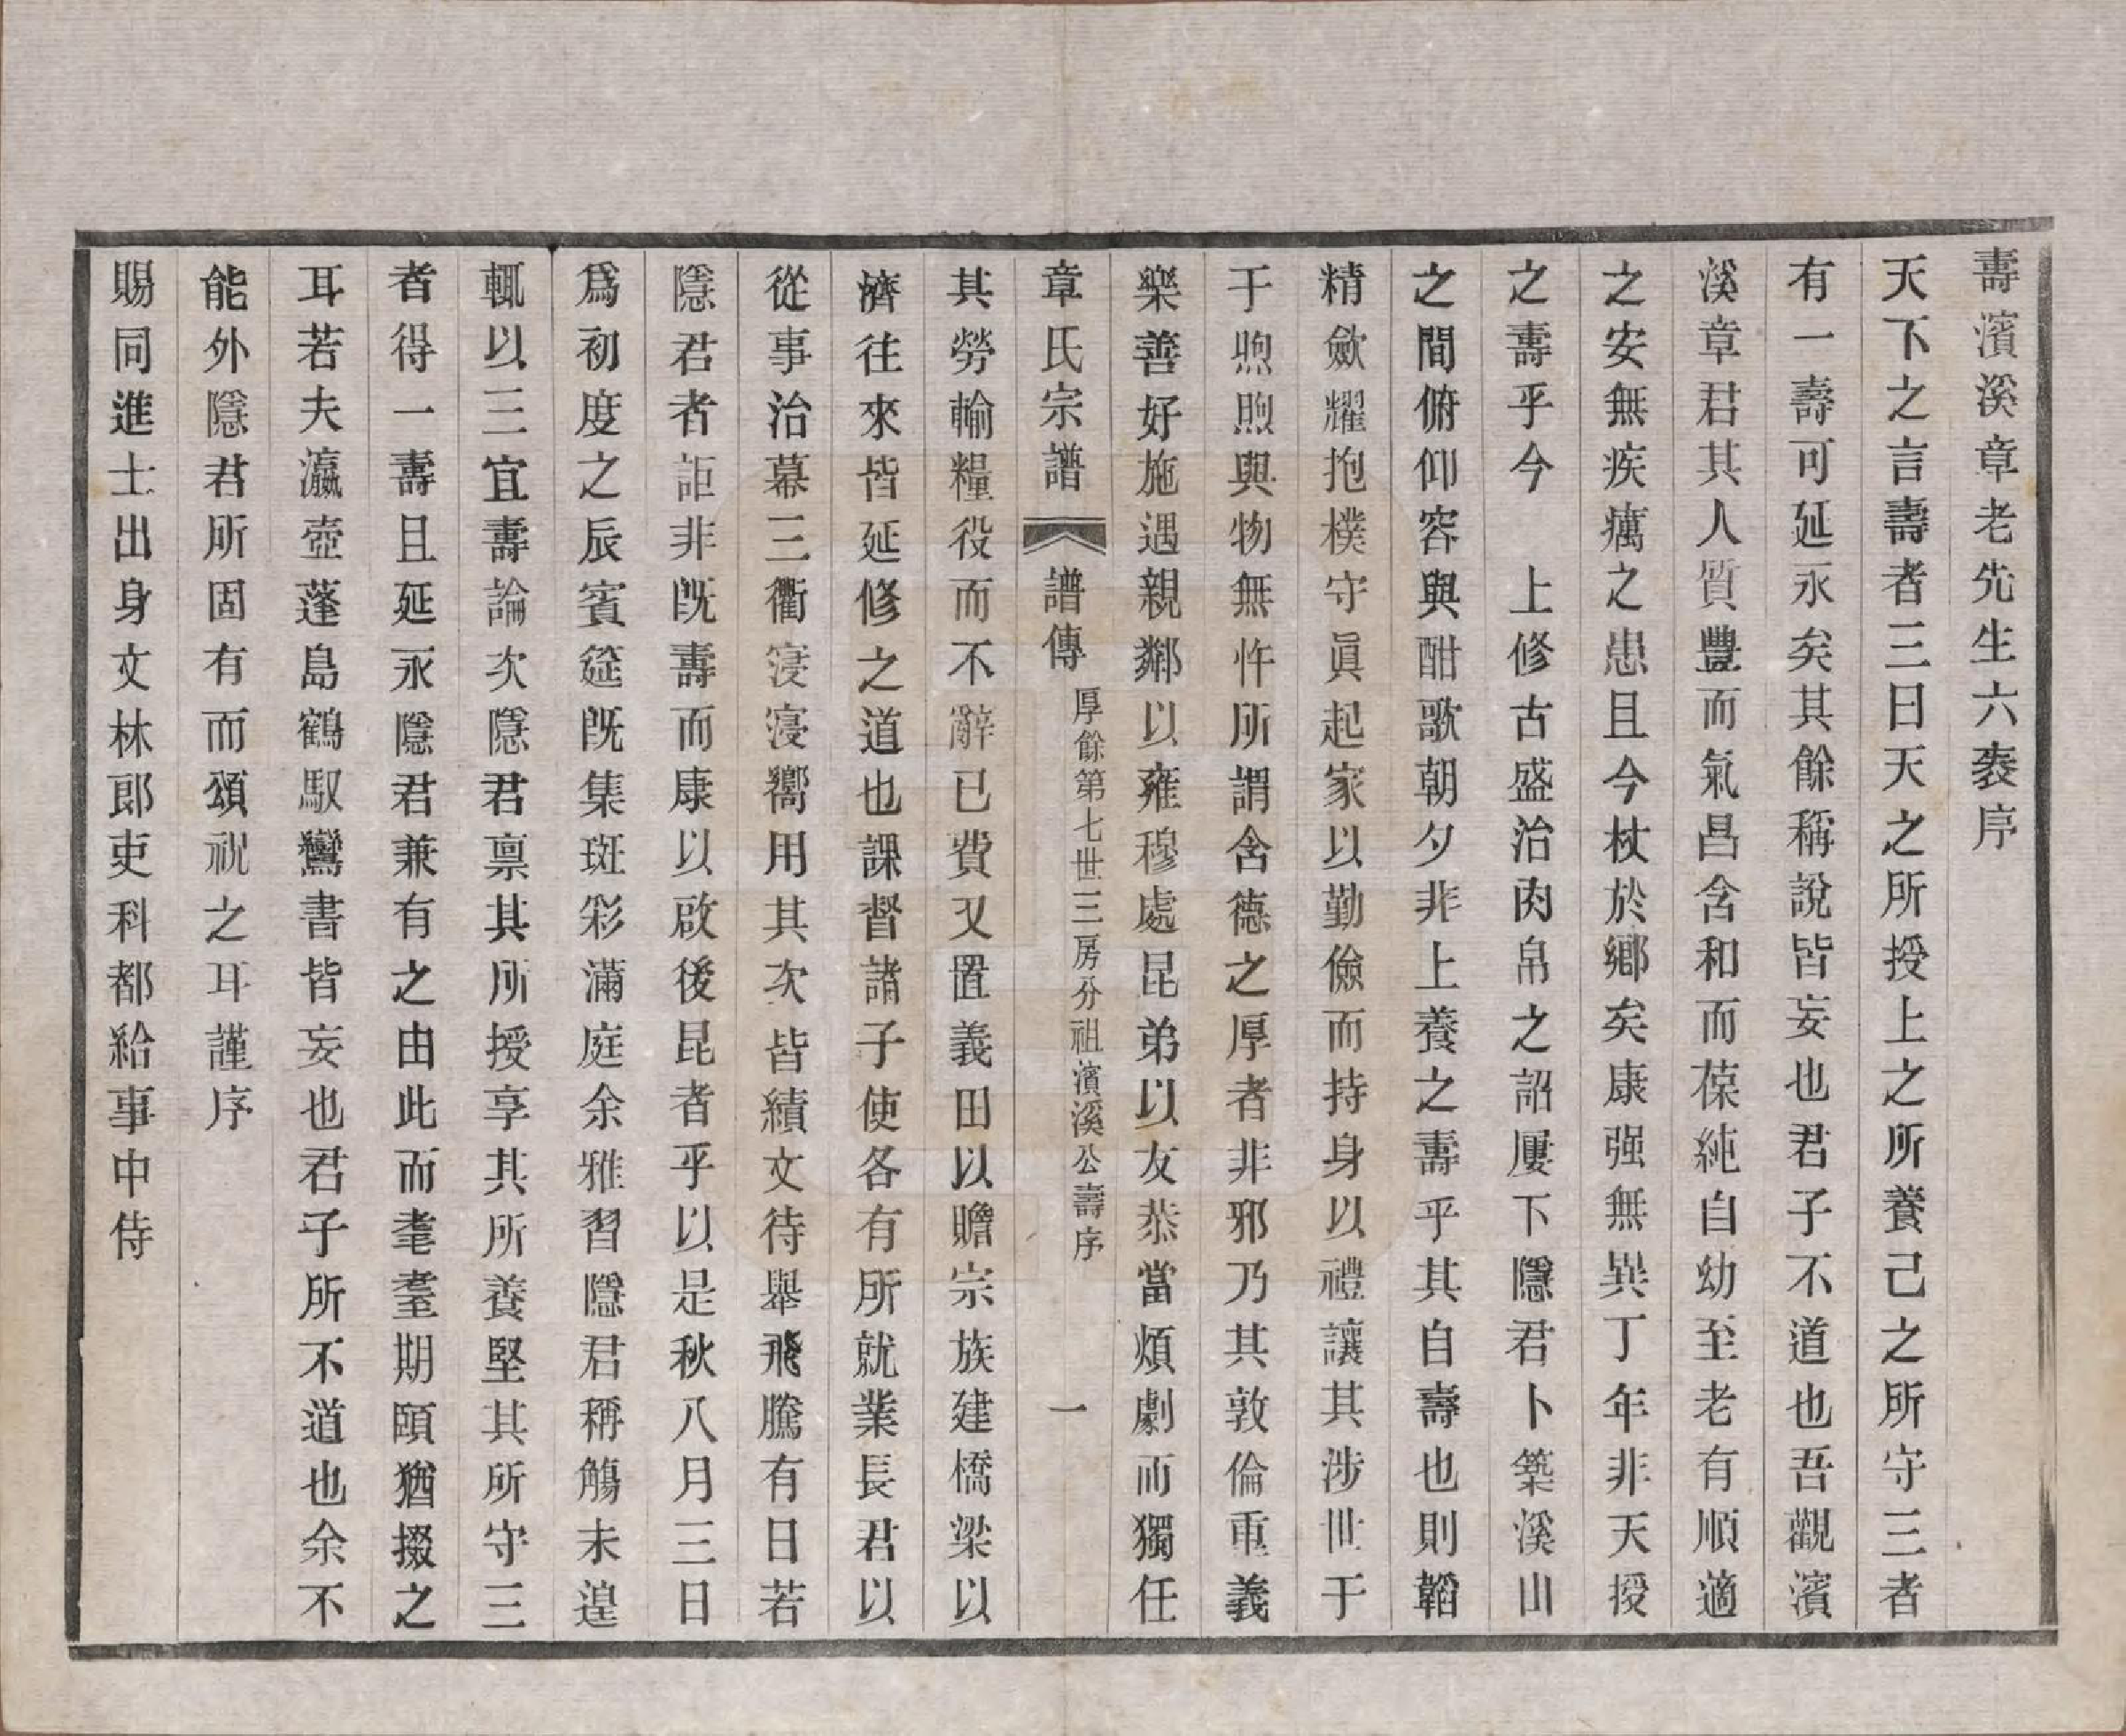 壽濱溪章老先生六袠序
天下之言壽者三曰天之所授上之所養己之所守三者
有一壽可延永矣其餘稱說皆妄也君子不道也吾觀濱
溪章君其人質豐而氣昌含和而葆純自幼至老有順適
之安無疾癘之患且今杖於鄉矣康强無異丁年非天授
之壽乎今　上修古盛治肉帛之詔屢下隱君卜築溪山
之間俯仰容與酣歌朝夕非上養之壽乎其自壽也則韜
精歛耀抱樸守眞起家以勤儉而持身以禮讓其涉世于
于煦煦與物無忤所謂含德之厚者非邪乃其敦倫重義
樂善好施遇親鄰以雍穆處昆弟以友恭當煩劇而獨任
章氏宗譜　譜傳　厚餘第七世三房分祖濱溪公壽序　一
其勞輸糧役而不辭已費又置義田以贍宗族建橋梁以
濟往來皆延修之道也課督諸子使各有所就業長君以
從事治幕三衢寖寖嚮用其次皆績文待舉飛騰有日若
隱君者詎非旣壽而康以啟後昆者乎以是秋八月三日
爲初度之辰賓筵旣集斑彩滿庭余雅習隱君稱觴未遑
輒以三宜壽論次隱君禀其所授享其所養堅其所守三
者得一壽且延永隱君兼有之由此而耄耋期頤猶掇之
耳若夫瀛壺蓬島鶴馭鸞書皆妄也君子所不道也余不
能外隱君所固有而頌祝之耳謹序
賜同進士出身文林郎吏科都給事中侍